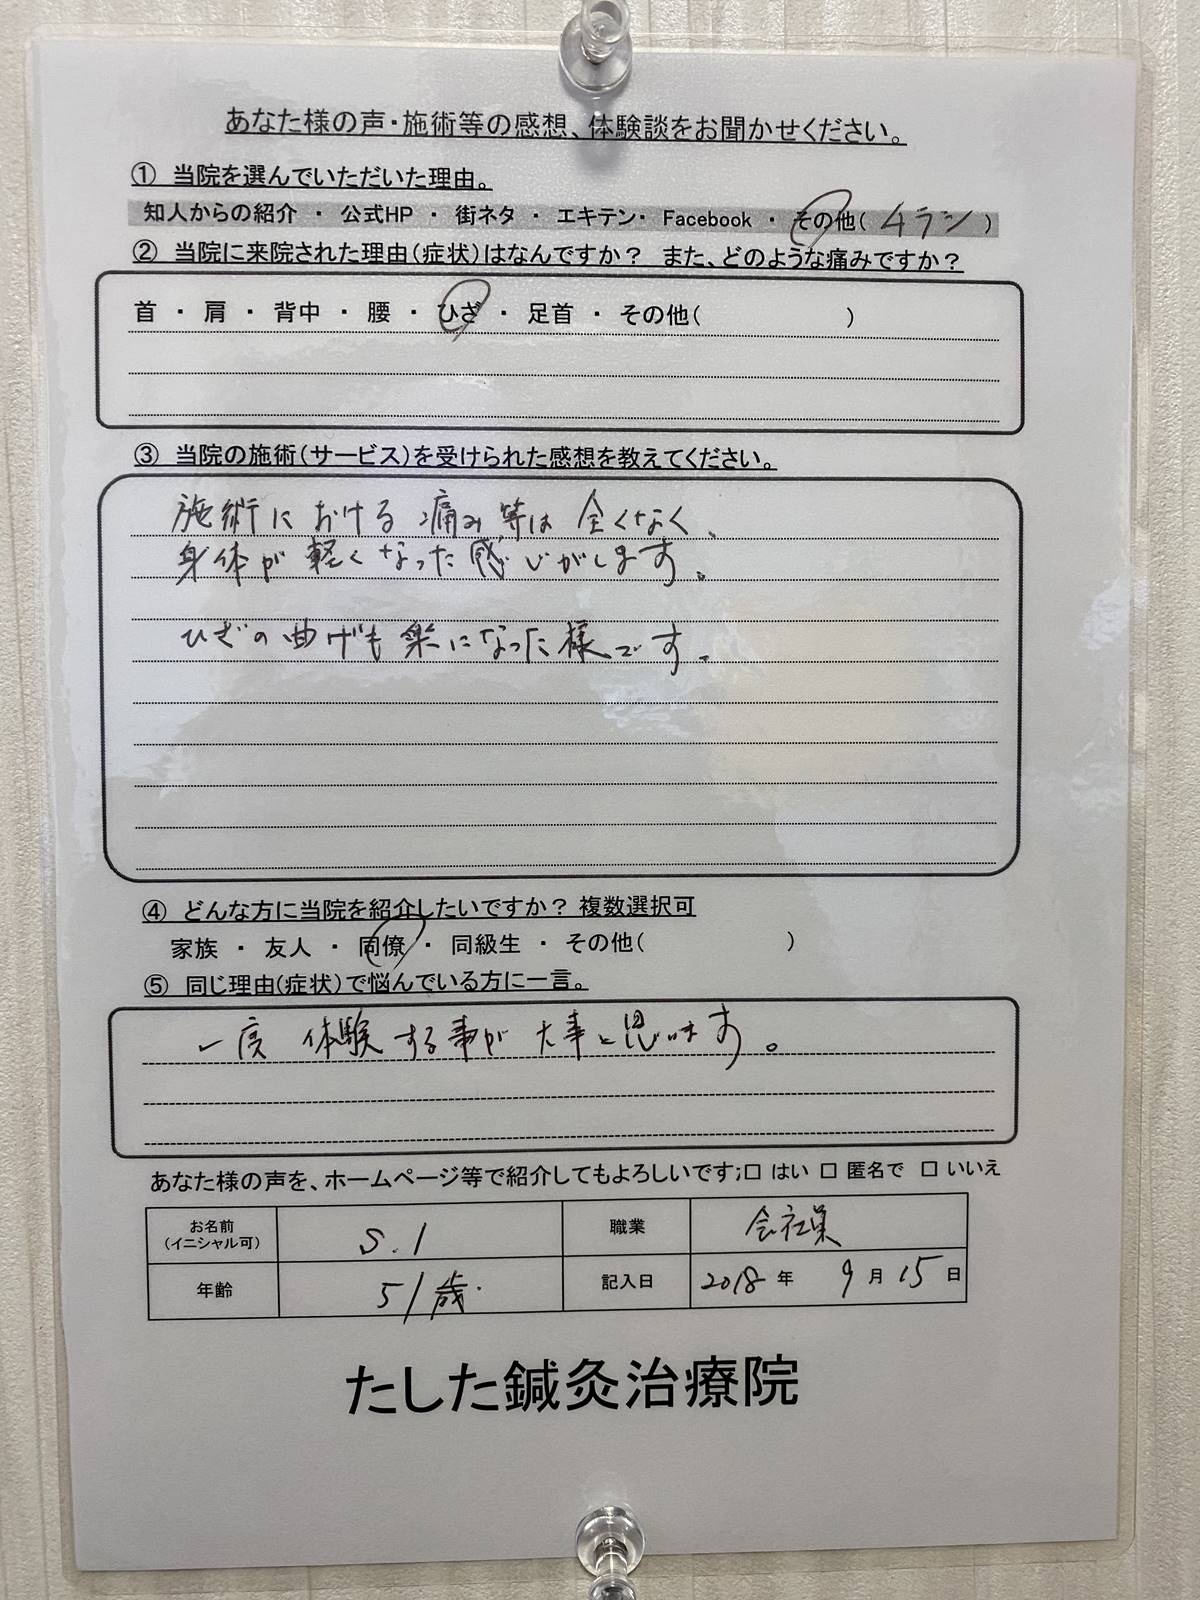 あなた様の声・施術等の感想、体験談をお聞かせください。
① 当院を選んでいただいた理由。
知人からの紹介 ・ 公式HP ・ 街ネタ ・ エキテン・ Facebook ・ その他( チラシ )
② 当院に来院された理由(症状)はなんですか? また、どのような痛みですか?
首 ・ 肩 ・ 背中 ・ 腰 ・ ひざ ・ 足首 ・ その他( )
③ 当院の施術(サービス)を受けられた感想を教えてください。
施術における痛み等は全くなく、
身体が軽くなった感じがします。
ひざの曲げも楽になった様です。
④ どんな方に当院を紹介したいですか? 複数選択可
家族 ・ 友人 ・ 同僚 ・ 同級生 ・ その他( )
⑤ 同じ理由(症状)で悩んでいる方に一言。
一度 体験する事が大事と思います。
あなた様の声を、ホームページ等で紹介してもよろしいです;□ はい □ 匿名で □ いいえ
お名前(イニシャル可) S.I 職業 会社員
年齢 51歳. 記入日 2018 年 9 月 15 日
たした鍼灸治療院